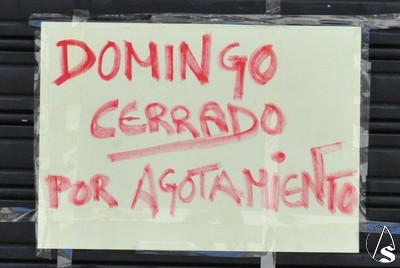 DOMINGO
CERRADO
POR AGOTAMIENTO